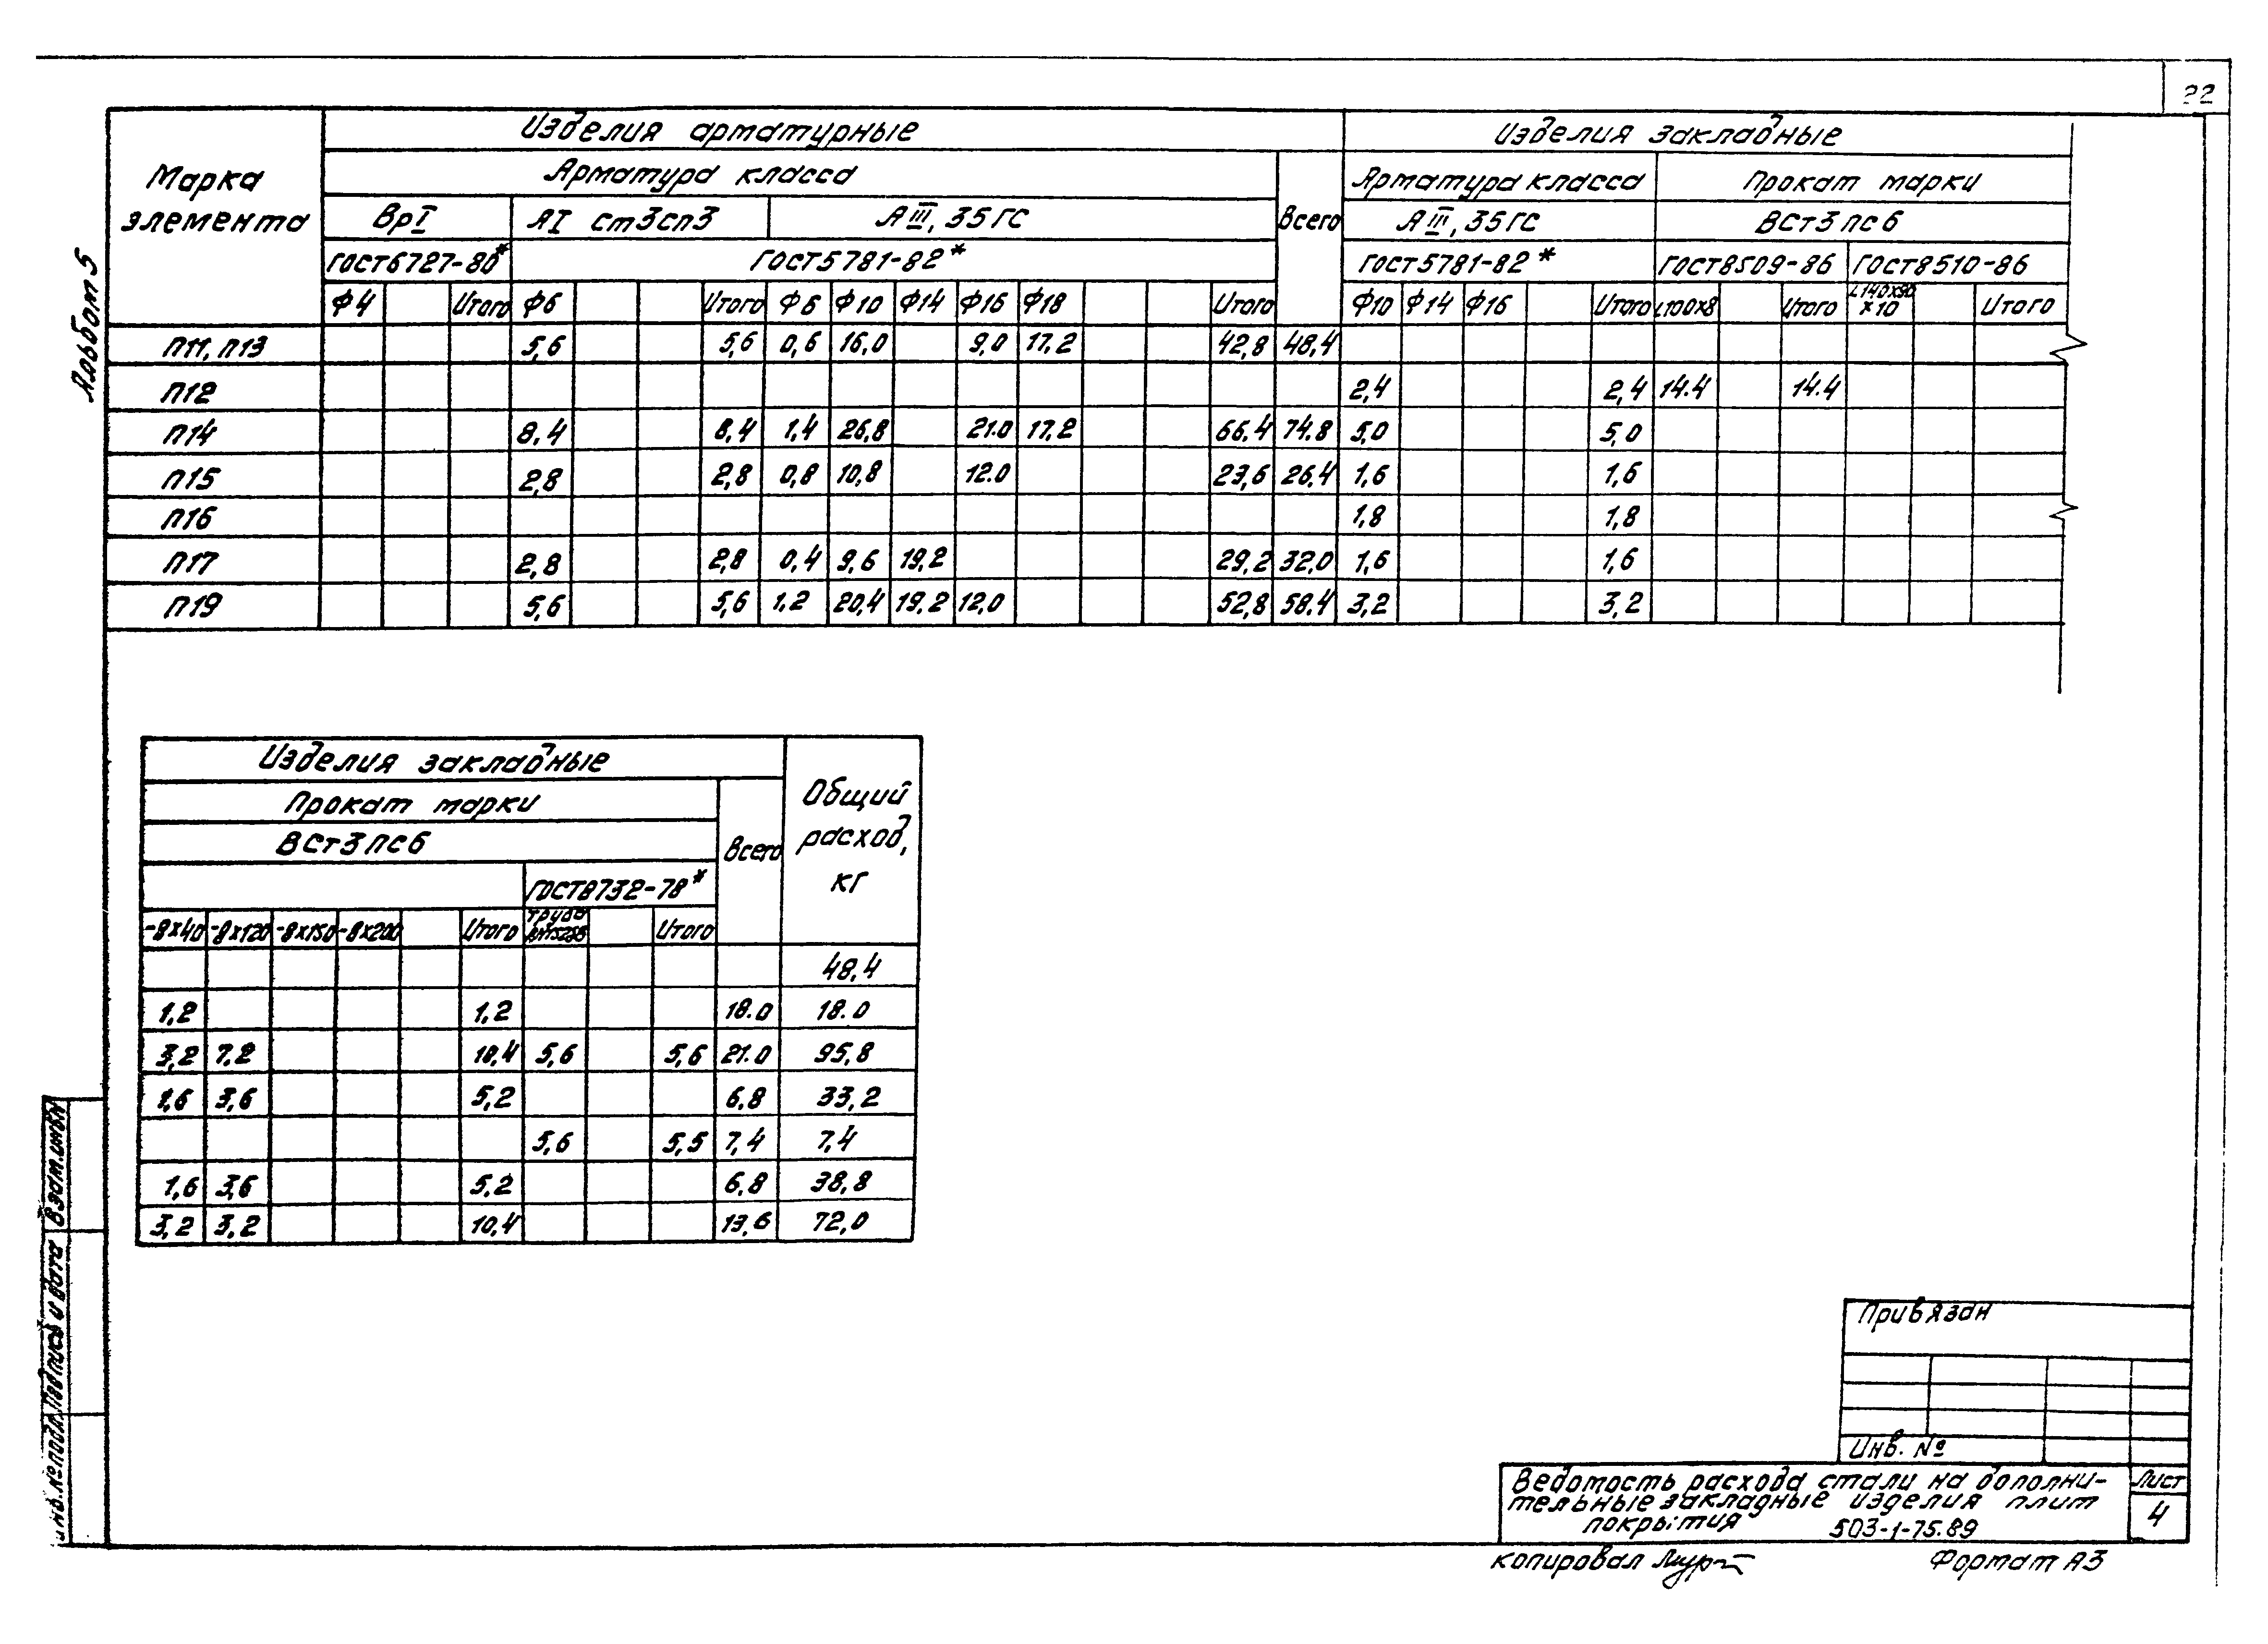 22
Альбом 5
Марка элемента
Изделия арматурные
Изделия закладные
Арматура класса
Всего
Арматура класса
Прокат марки
ВрI
АI ст3сп3
АIII, 35ГС
АIII, 35ГС
ВСт3пс6
ГОСТ6727-80*
ГОСТ5781-82*
ГОСТ5781-82*
ГОСТ8509-86
ГОСТ8510-86
Ф4 Итого Ф6 Итого Ф6 Ф10 Ф14 Ф16 Ф18 Итого Ф10 Ф14 Ф16 Итого L100х8 Итого L140х90х10 Итого
П11, П13 5,6 5,6 0,6 16,0 9,0 17,2 42,8 48,4
П12 2,4 2,4 14.4 14.4
П14 8,4 8,4 1,4 26,8 21.0 17,2 66,4 74.8 5,0 5,0
П15 2,8 2,8 0,8 10,8 12.0 23,6 26.4 1,6 1,6
П16 1,8 1,8
П17 2,8 2,8 0,4 9,6 19,2 29,2 32,0 1,6 1,6
П19 5,6 5,6 1,2 20,4 19,2 12,0 52,8 58.4 3,2 3,2
Изделия закладные
Общий расход, кг
Прокат марки
Всего
ВСт3пс6
ГОСТ8732-78*
-8х40 -8х120 -8х150 -8х200 Итого труба Итого
48,4
1,2 1,2 18.0 18.0
3,2 7,2 10,4 5,6 5,6 21.0 95,8
1,6 3,6 5,2 6,8 33,2
5,6 5,5 7,4 7,4
1,6 3,6 5,2 6,8 38,8
3,2 3,2 10,4 13,6 72,0
Взам.инв.№
Подпись и дата
Инв.№подл.
Привязан
Инв. №
Ведомость расхода стали на дополни-
тельные закладные изделия плит
покрытия 503-1-75.89
Лист
4
копировал
Формат А3